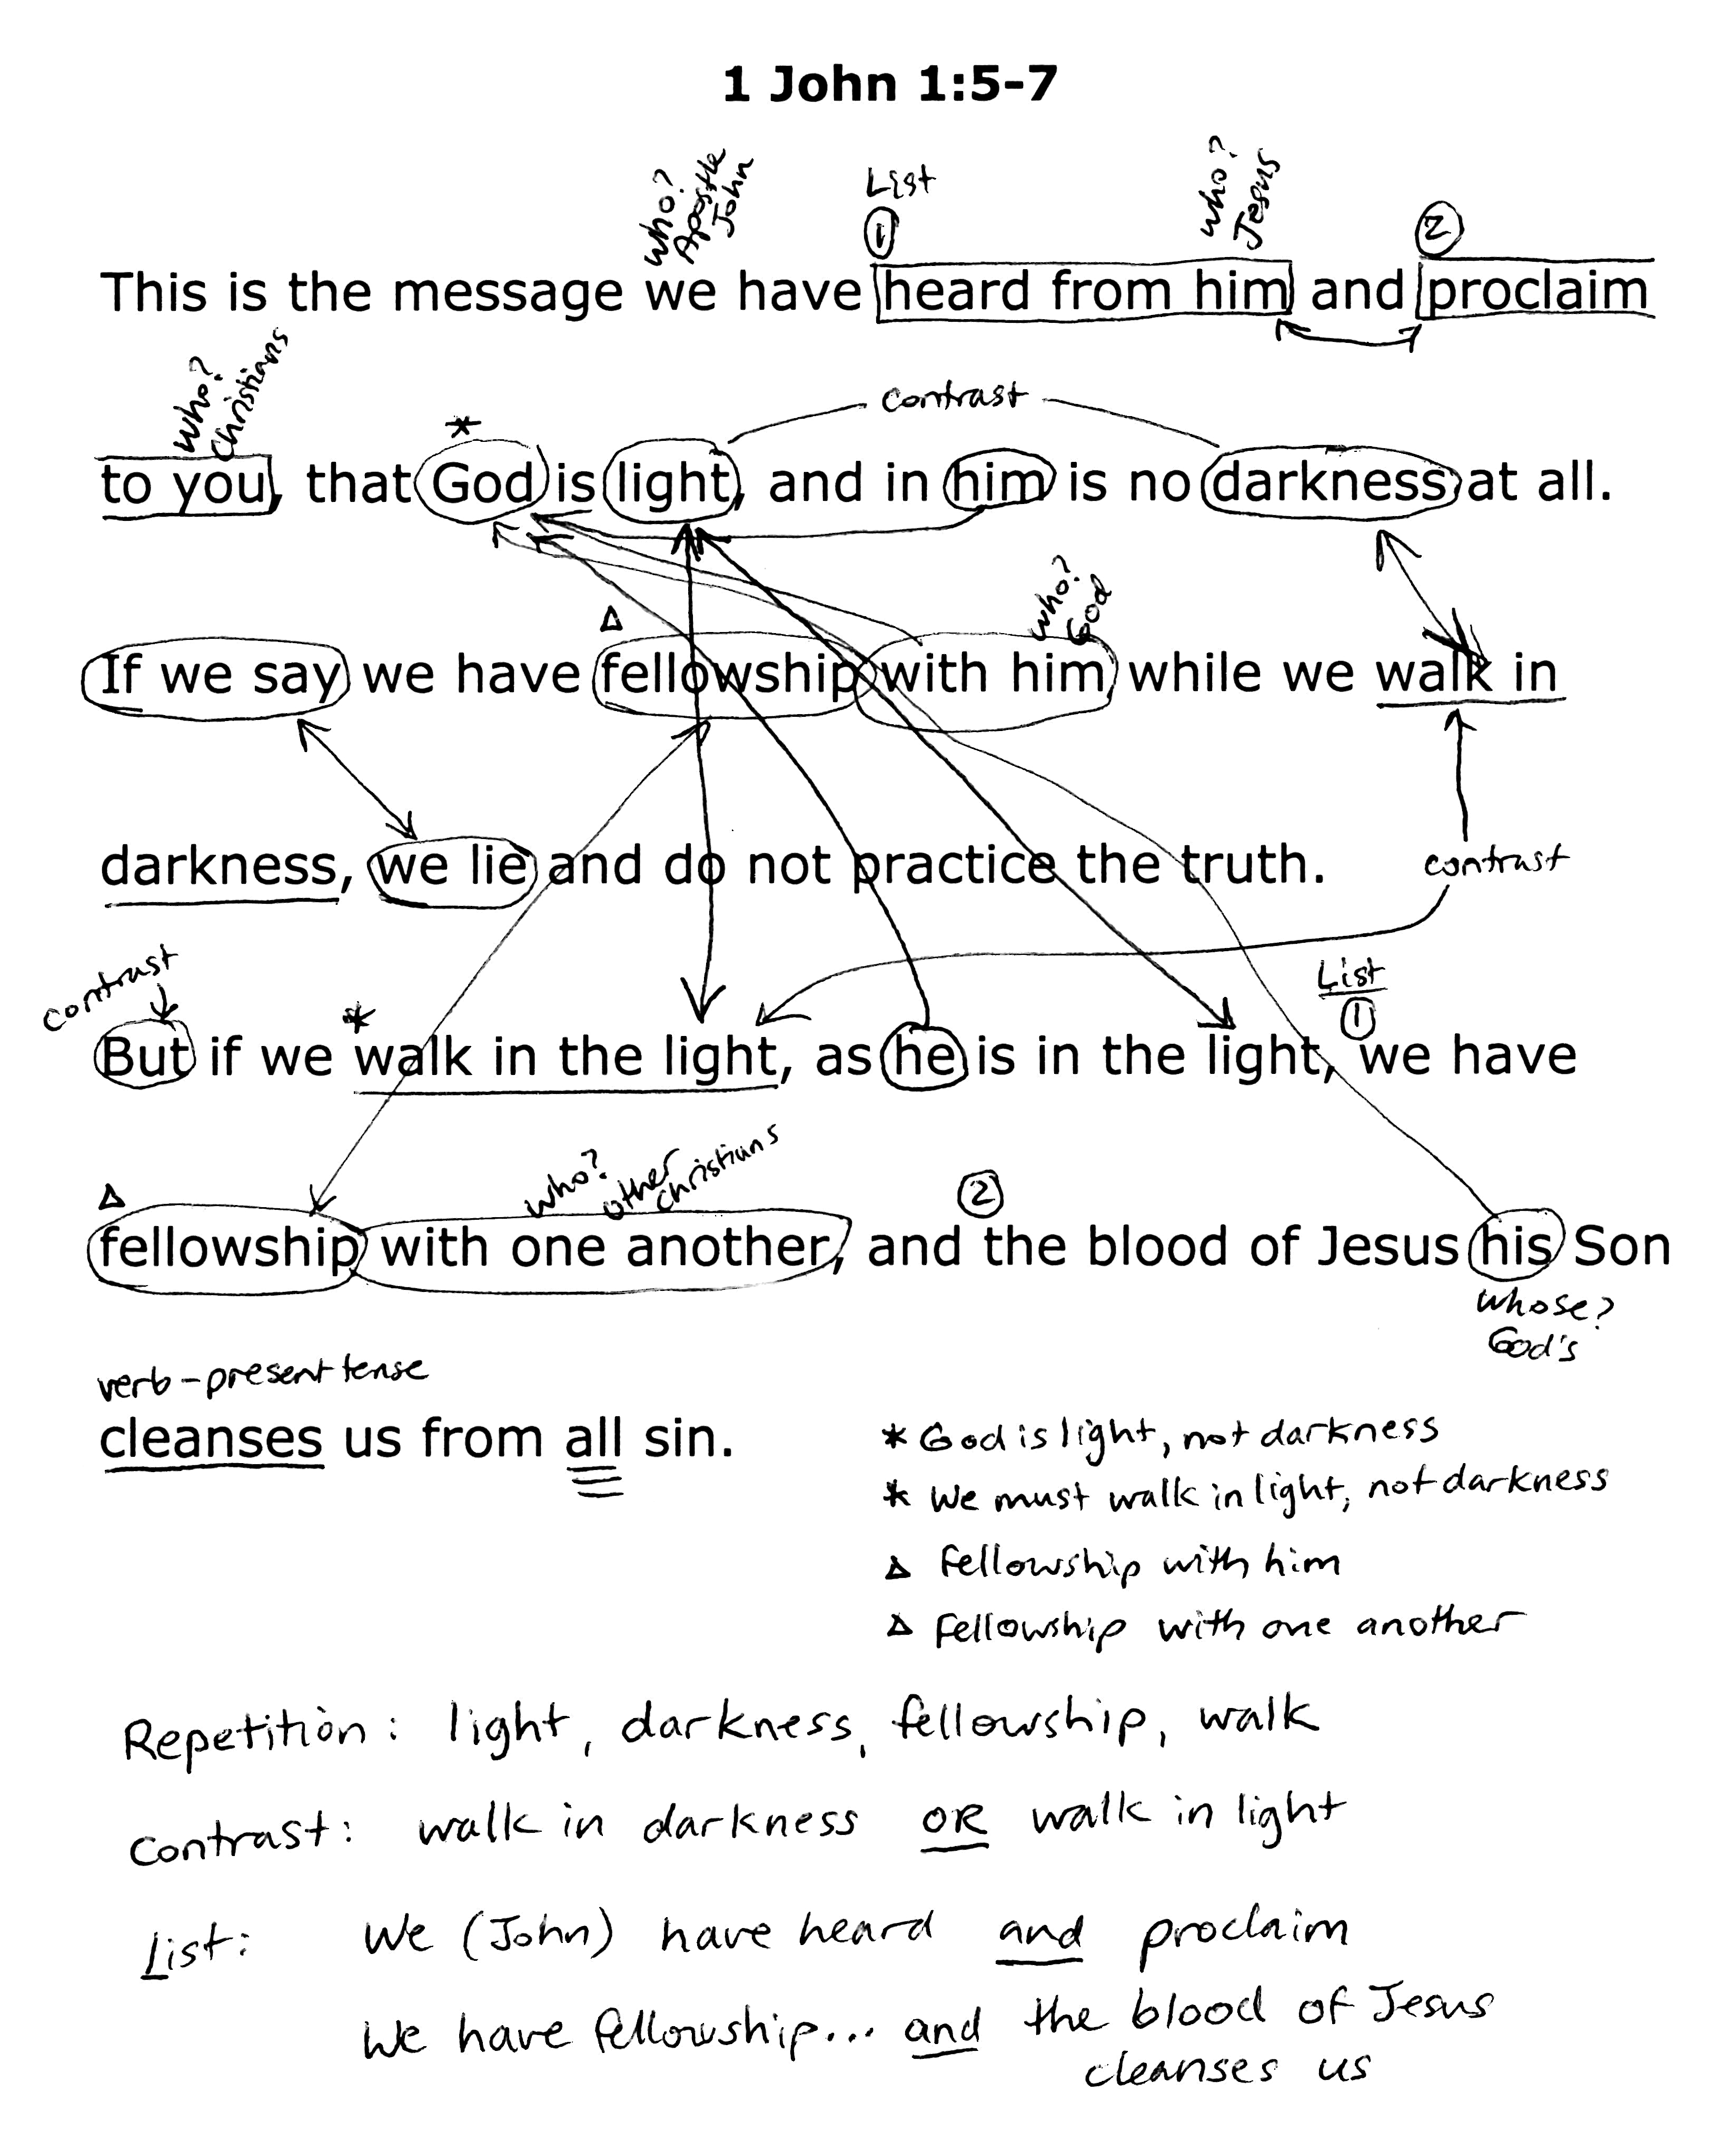 1 John 1:5-7
who? Apostle John
List
who? Jesus
① ②
This is the message we have heard from him and proclaim
who? Christians
contrast
*
to you, that God is light, and in him is no darkness at all.
who? God
Δ
If we say we have fellowship with him while we walk in
darkness, we lie and do not practice the truth.
contrast
contrast
List
* ①
But if we walk in the light, as he is in the light, we have
who? other christians
Δ ②
fellowship with one another, and the blood of Jesus his Son
whose?
God's
verb - present tense
cleanses us from all sin.
* God is light, not darkness
* We must walk in light, not darkness
Δ Fellowship with him
Δ Fellowship with one another
Repetition: light, darkness, fellowship, walk
contrast: walk in darkness OR walk in light
List: We (John) have heard and proclaim
We have fellowship... and the blood of Jesus
cleanses us